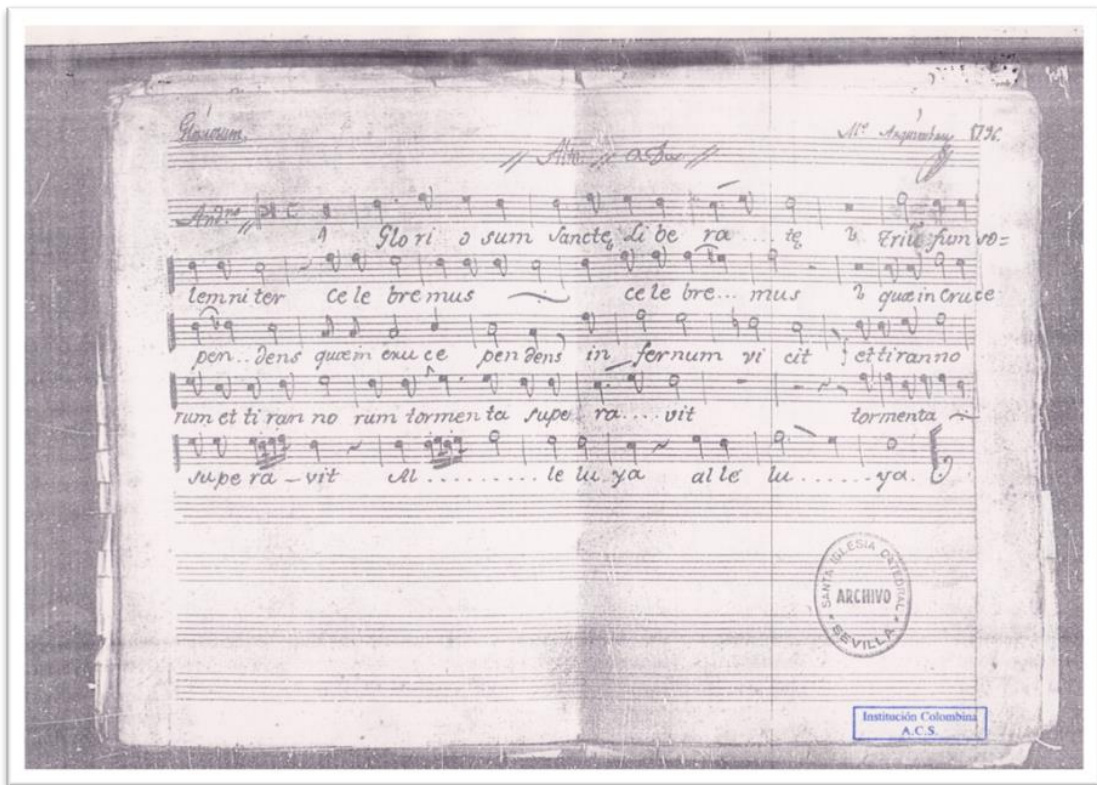 Gloriosum.
Mo. Arquimbau 1796.
// Alto. // a Duo //
And.no //
Glo ri o sum sanctę li be ra .... tę 2 Triũ fum so=
lemni ter ce le bremus ce le bre... mus 2 quæ in Cruce
pen.. dens quæ in cru ce pen dens in fernum vi cit et tiranno
rum et ti ran no rum tormen ta supe ra .... vit tormenta
supe ra – vit Al .......... le lu ya al le lu ....... ya.
SANTA IGLESIA CATEDRAL
ARCHIVO
* SEVILLA *
Institución Colombina
A.C.S.